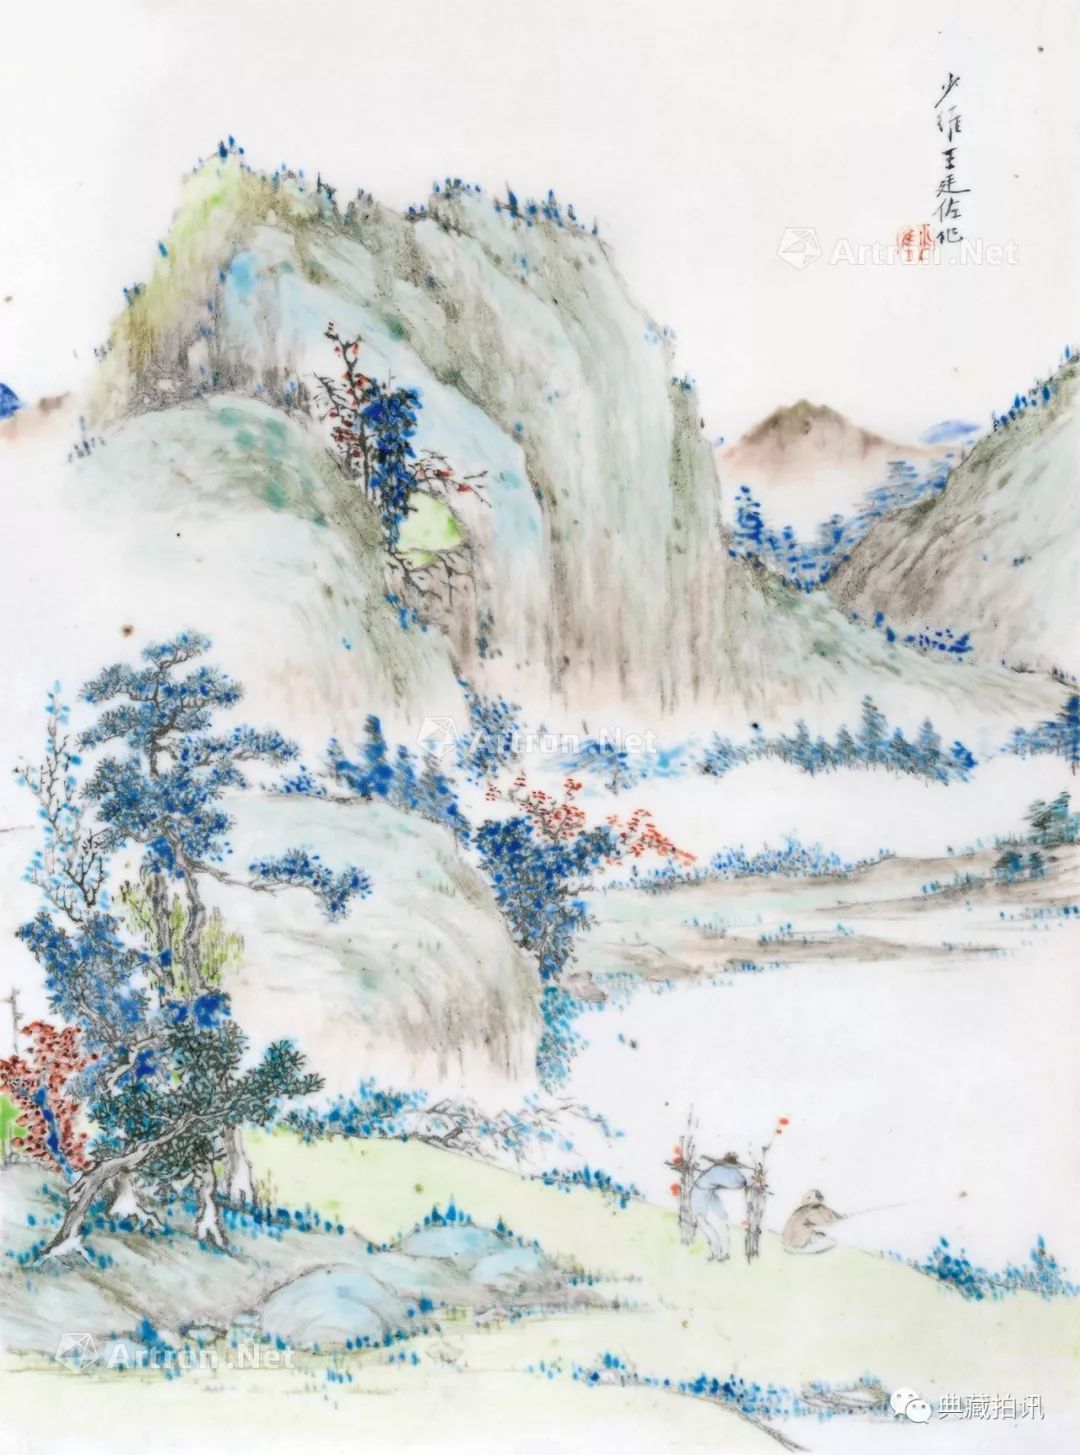 少維王廷佐作
Artron.Net
Artron.Net
Artron.Net
典藏拍讯